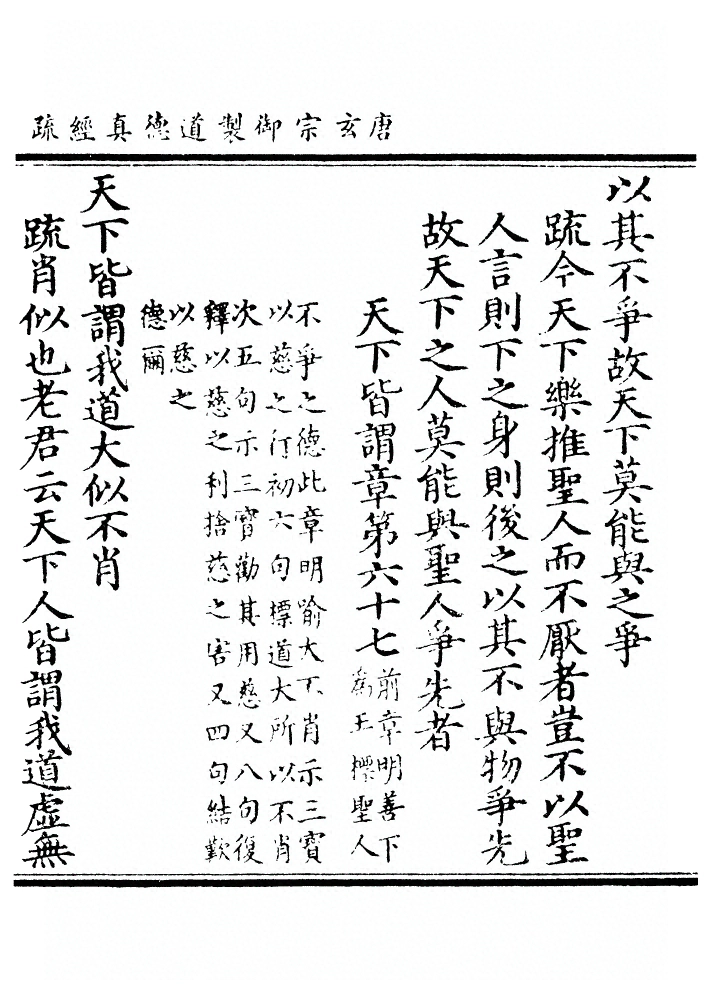 唐玄宗御製道德真經疏
以其不爭故天下莫能與之爭
疏今天下樂推聖人而不厭者豈不以聖
人言則下之身則後之以其不與物爭先
故天下之人莫能與聖人爭先者
天下皆謂章第六十七
前章明善下
為王標聖人
不爭之德此章明喻大不肖示三寶
以慈之行初六句標道大所以不肖
次五句示三寶勸其用慈又八句復
釋以慈之利捨慈之害又四句結歎
以慈之
德爾
天下皆謂我道大似不肖
疏肖似也老君云天下人皆謂我道虛無